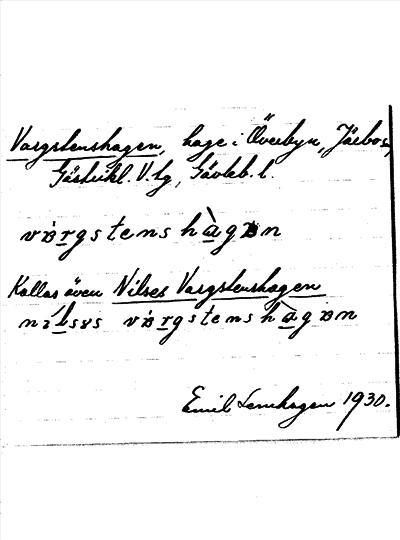 Vargstenshagen, hage i Överbyn, Järbo sn,
Gästrikl. V. tg, Gävleb. l.
vàrgstens hàgan
Kallas även Nilses Vargstenshagen
nilsəs vàrgstens hàgan
Emil Lenhagen 1930.